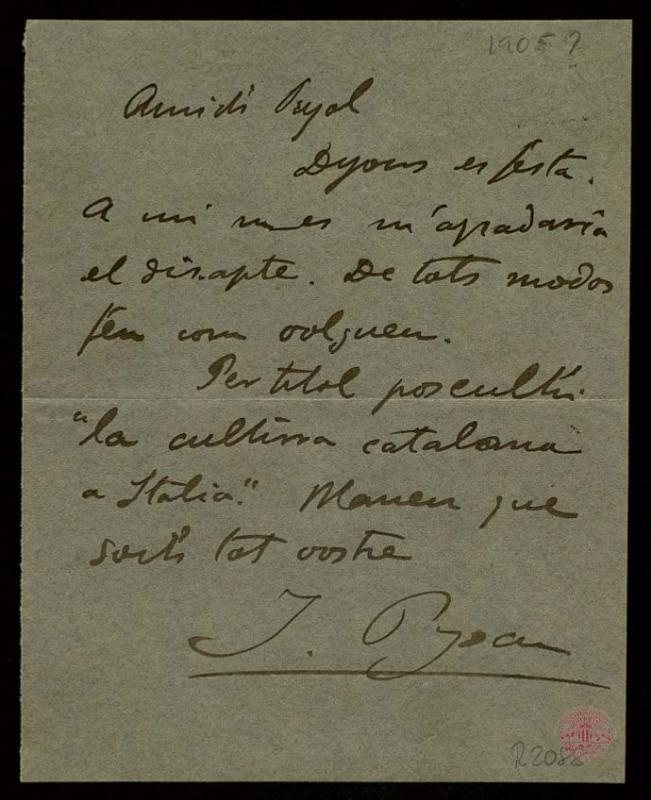 1905?
Amich Pujol
Dijous es festa.
A mi m'agradaria
el disapte. De tots modos
fem com volguen.
Per titol
"la cultura catalana
a Italia". Manen que
tot vostre
J. Pijoan